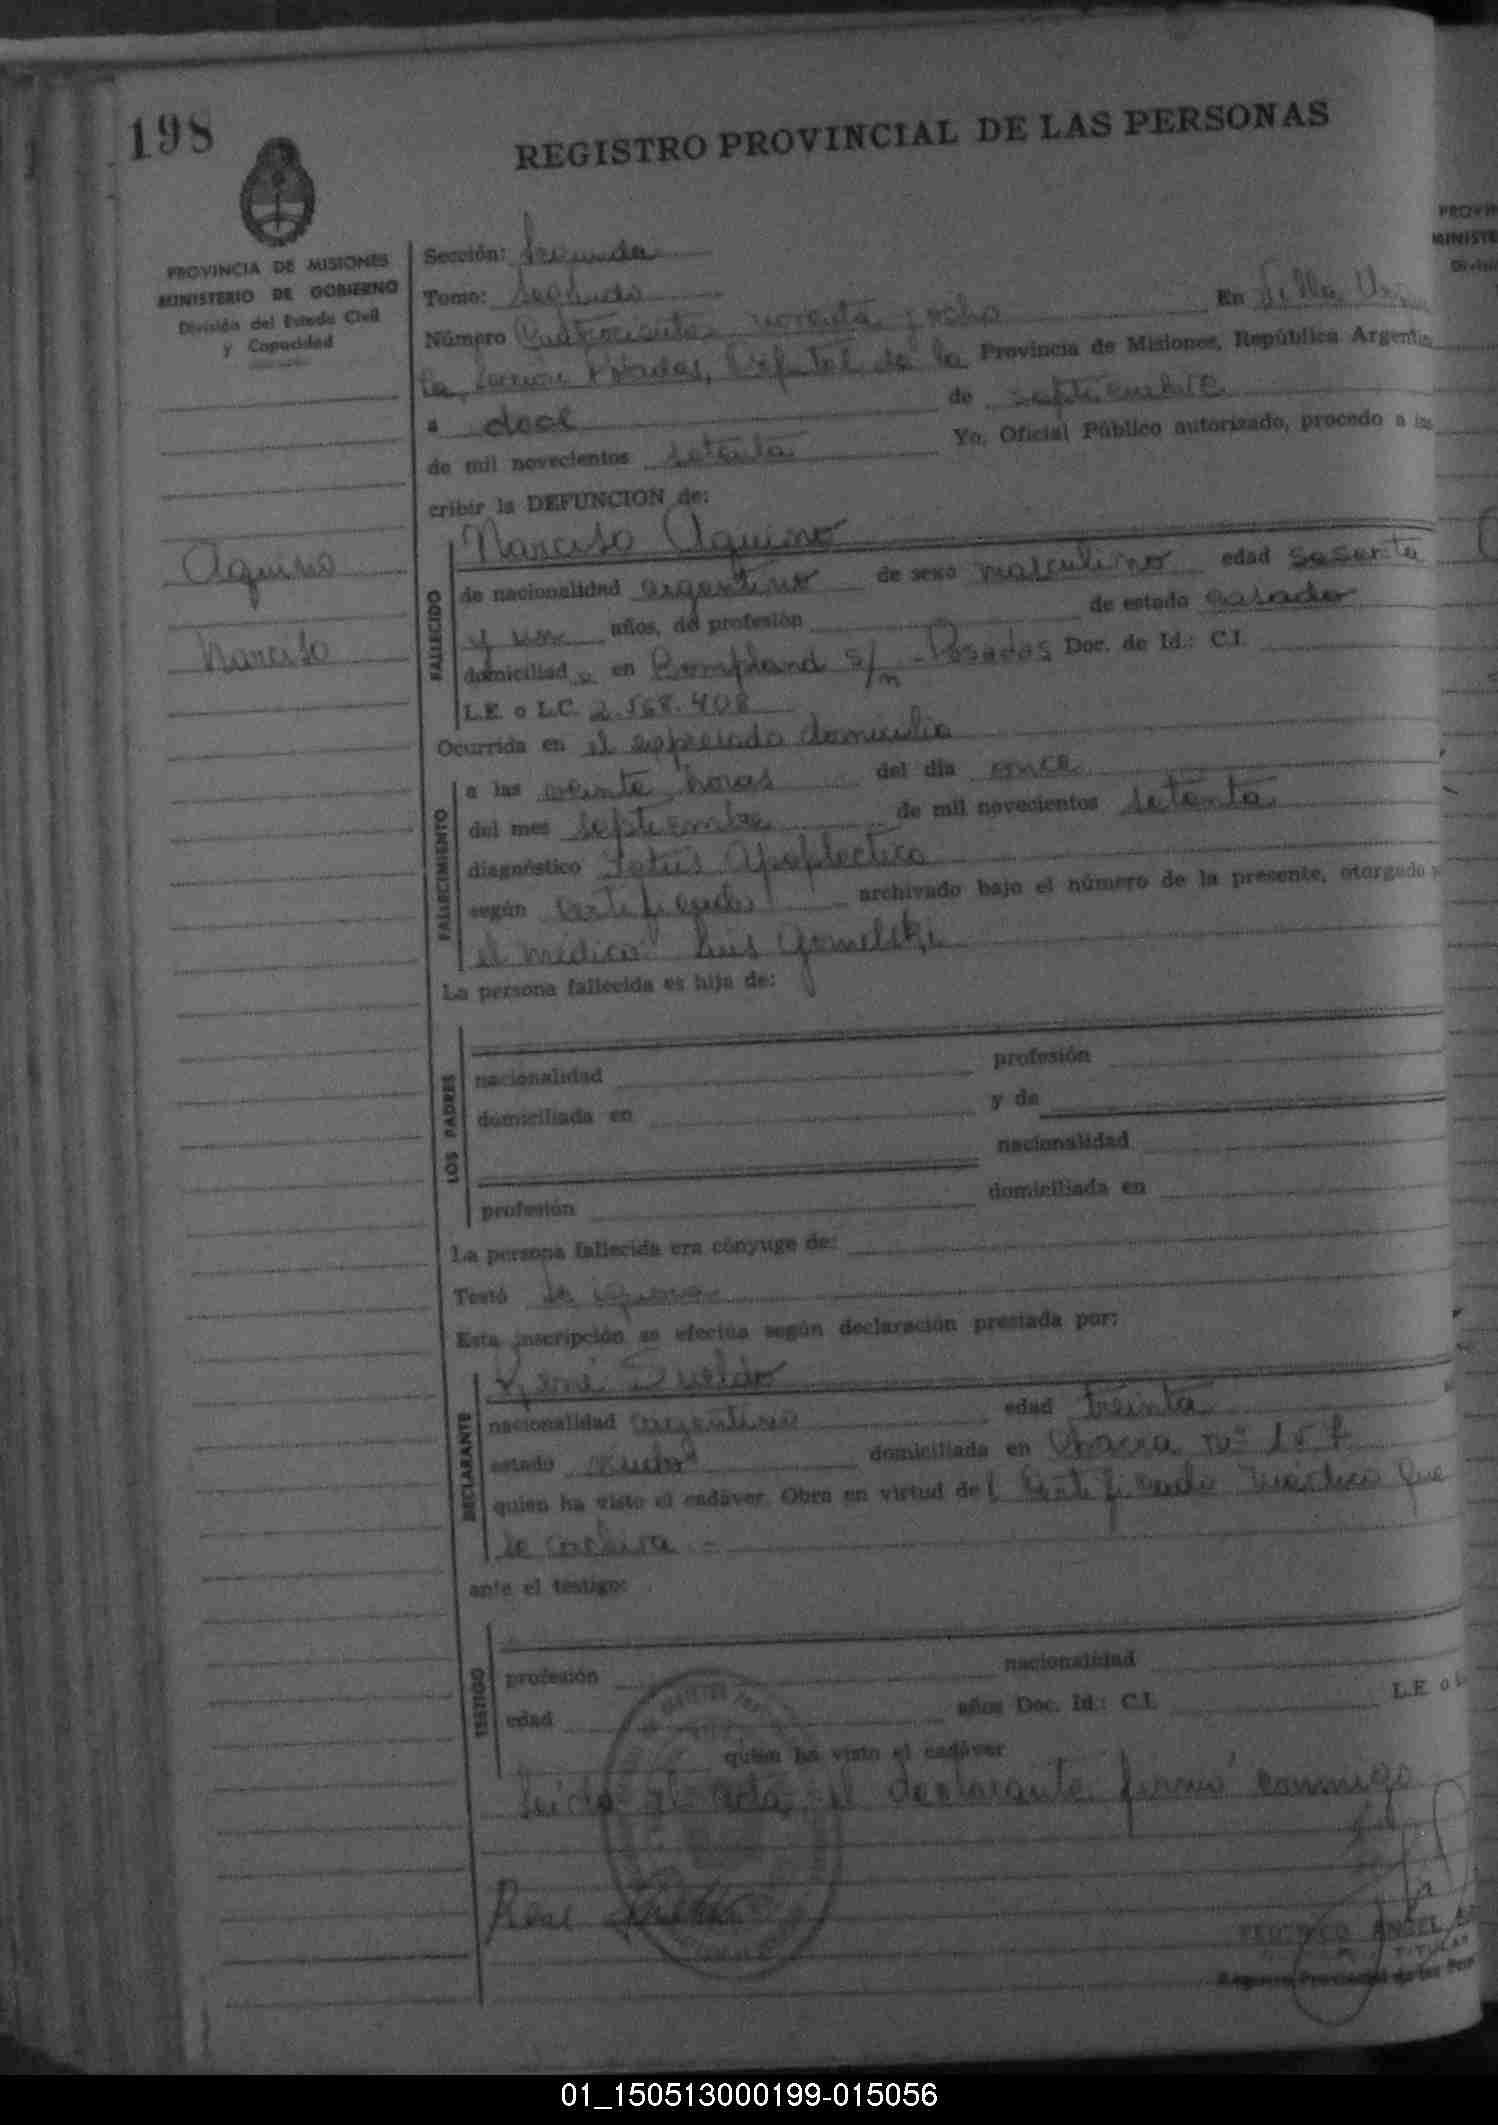 198
REGISTRO PROVINCIAL DE LAS PERSONAS
PROVINCIA DE MISIONES
MINISTERIO DE GOBIERNO
División del Estado Civil
y Capacidad
Sección: Segunda
Tomo: Segundo
Número Cuatrocientos noventa y ocho En Villa
Posadas, Capital de la Provincia de Misiones, República Argentin
a doce de septiembre
de mil novecientos setenta Yo, Oficial Público autorizado, procedo a ins
cribir la DEFUNCION de:
Aquino
Narciso
FALLECIDO
Narciso Aquino
de nacionalidad argentino de sexo masculino edad sesenta
y un años, de profesión de estado casado
domiciliad o en Bompland s/n - Posadas Doc. de Id.: C.I.
L.E. o L.C. 2.568.408
Ocurrida en el expresado domicilio
FALLECIMIENTO
a las veinte horas del día once
del mes septiembre de mil novecientos setenta
diagnóstico Ictus Apoplectico
según certificado archivado bajo el número de la presente, otorgado
el médico Luis
La persona fallecida es hija de:
LOS PADRES
nacionalidad profesión
domiciliada en y de
nacionalidad
profesión domiciliada en
La persona fallecida era cónyuge de:
Testó se ignora
Esta inscripción se efectúa según declaración prestada por:
DECLARANTE
René Sueldo
nacionalidad argentino edad treinta
estado viudo domiciliada en Chacra nº 157
quien ha visto el cadáver. Obra en virtud del Certificado médico que
se archiva. =
ante el testigo:
TESTIGO
profesión nacionalidad
edad años Doc. Id.: C.I. L.E. o L
quien ha visto el cadáver
Leída el acta, el declarante firmó conmigo
René
FEDERICO ANGEL
TITULAR
Registro Provincial de las Per
PROVIN
MINISTE
Divisi
01_150513000199-015056